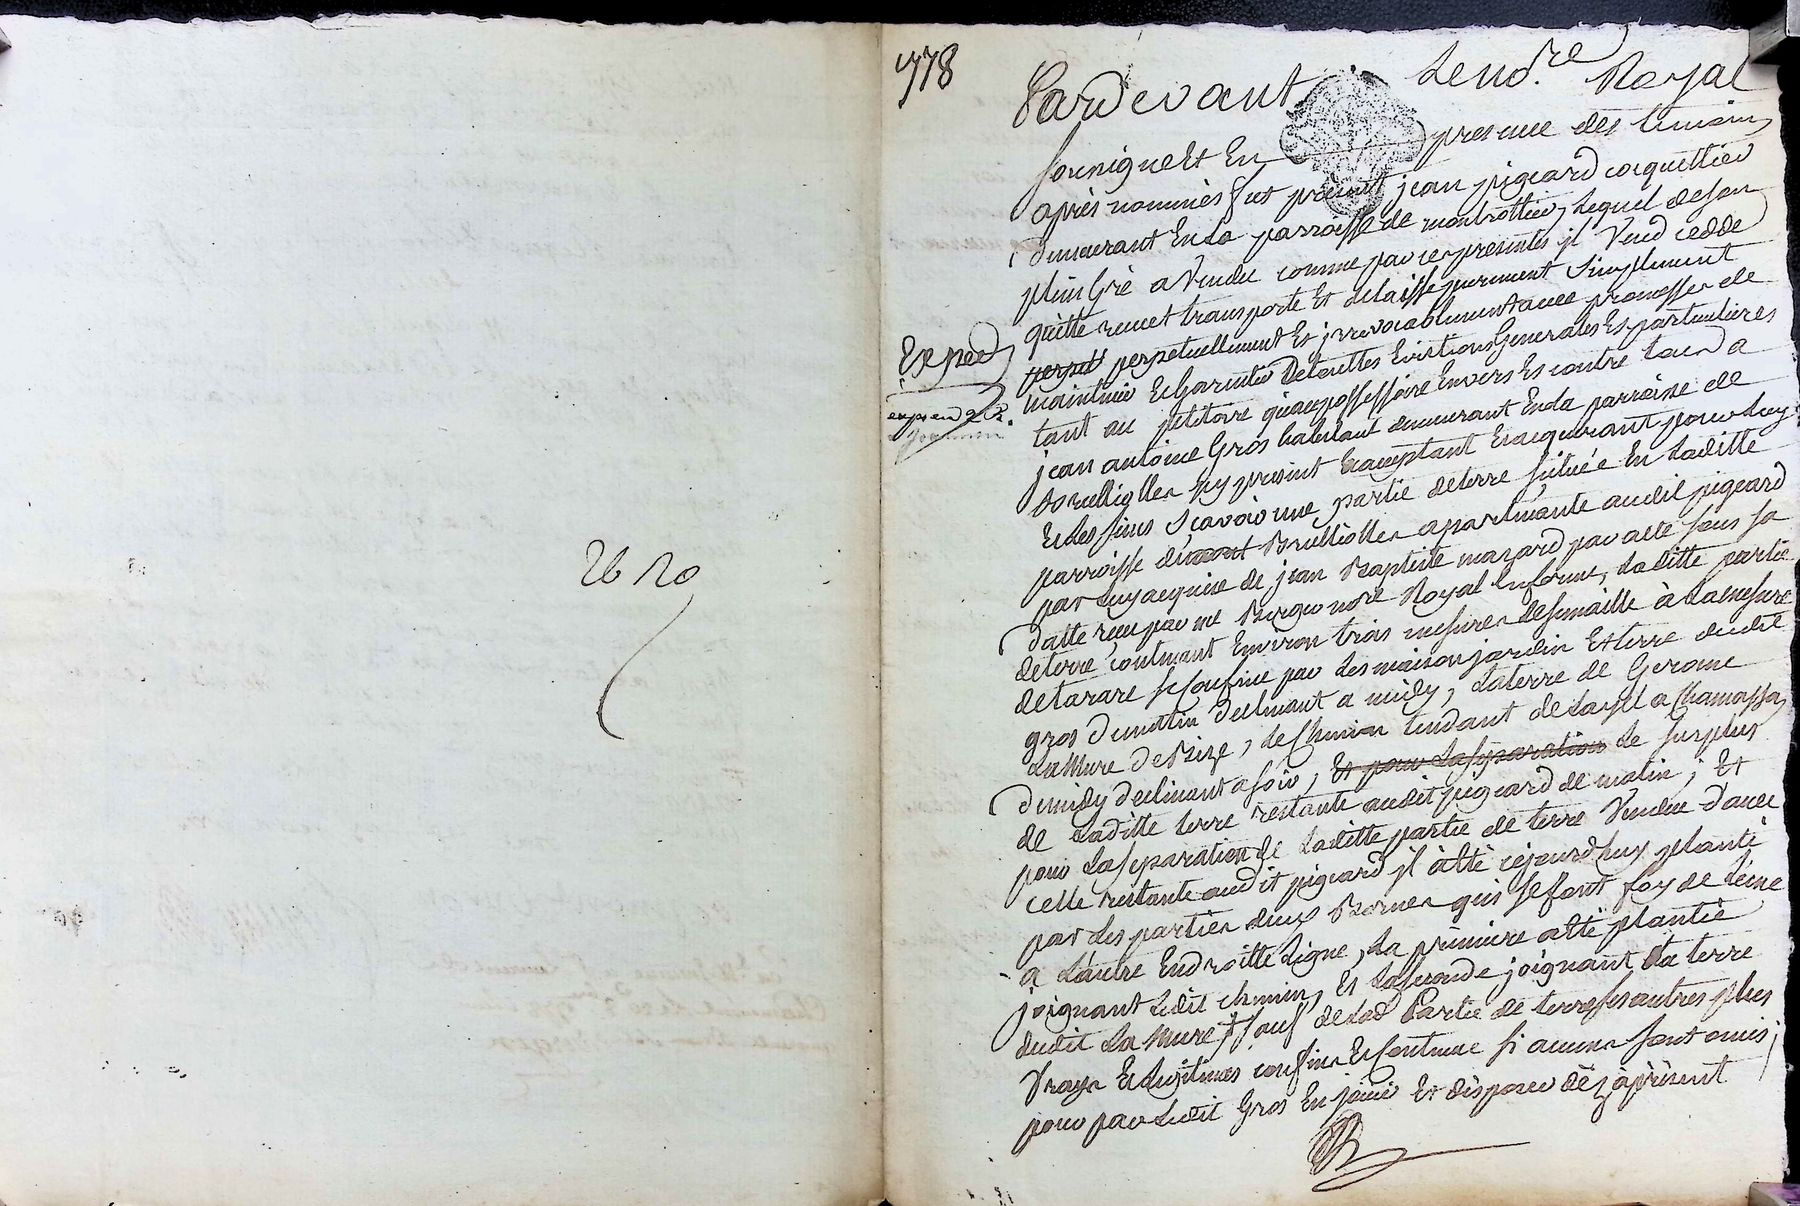 26 Ro
1778
Pardevant Le no.re Royal
soussigné Et En presence des temoins
après nommés fut present jean pigeard coquettier
demeurant En la parroisse de montrottier, Lequel de son
plein Gré a Vendu comme par ces presentes il Vend cedde
quitte remet transporte Et delaisse purement simplement
perpetuellement Et irrevocablement avec promesses de
maintenir Et Garentir De touttes Evictions Generales Et particulieres
tant au petitoire qu'au possessoire Envers Et contre tous a
jean antoine Gros habitant demeurant En la parroisse de
Brulliolles icy present Et acceptant Et acquerant pour Luy
Et Les siens sçavoir une partie de terre située En Laditte
parroisse de Brulliolles apartenante audit pigeard
par Luy acquise de jean Baptiste mazard par acte sous sa
datte reçu par me no.re Royal En forme, Laditte partie
de terre contenant Environ trois mesures de semaille à La mesure
de tarare se confine par Les maison jardin Et terre dudit
gros de matin declinant a midy, La terre de Gerome
La Mure de Bize, Le Chemin tendant de a Chamassa
de midy declinant a soir, Et pour La separation Le surplus
de Laditte terre restante audit pigeard de matin; Et
pour La separation de Laditte partie de terre Vendue d'avec
celle restante audit pigeard il à été cejourd'huy planté
par Les parties deux Bornes qui se font foy de L'une
a L'autre En droitte Ligne, La premiere a été plantée
joignant Ledit chemin, Et La seconde joignant La terre
dudit La Mure, sauf de Lad. Partie de terre ses autres plus
Vrays Et Legitimes confins Et contenue si aucuns sont omis;
pour par Ledit Gros En jouir Et disposer dès à présent
Exped